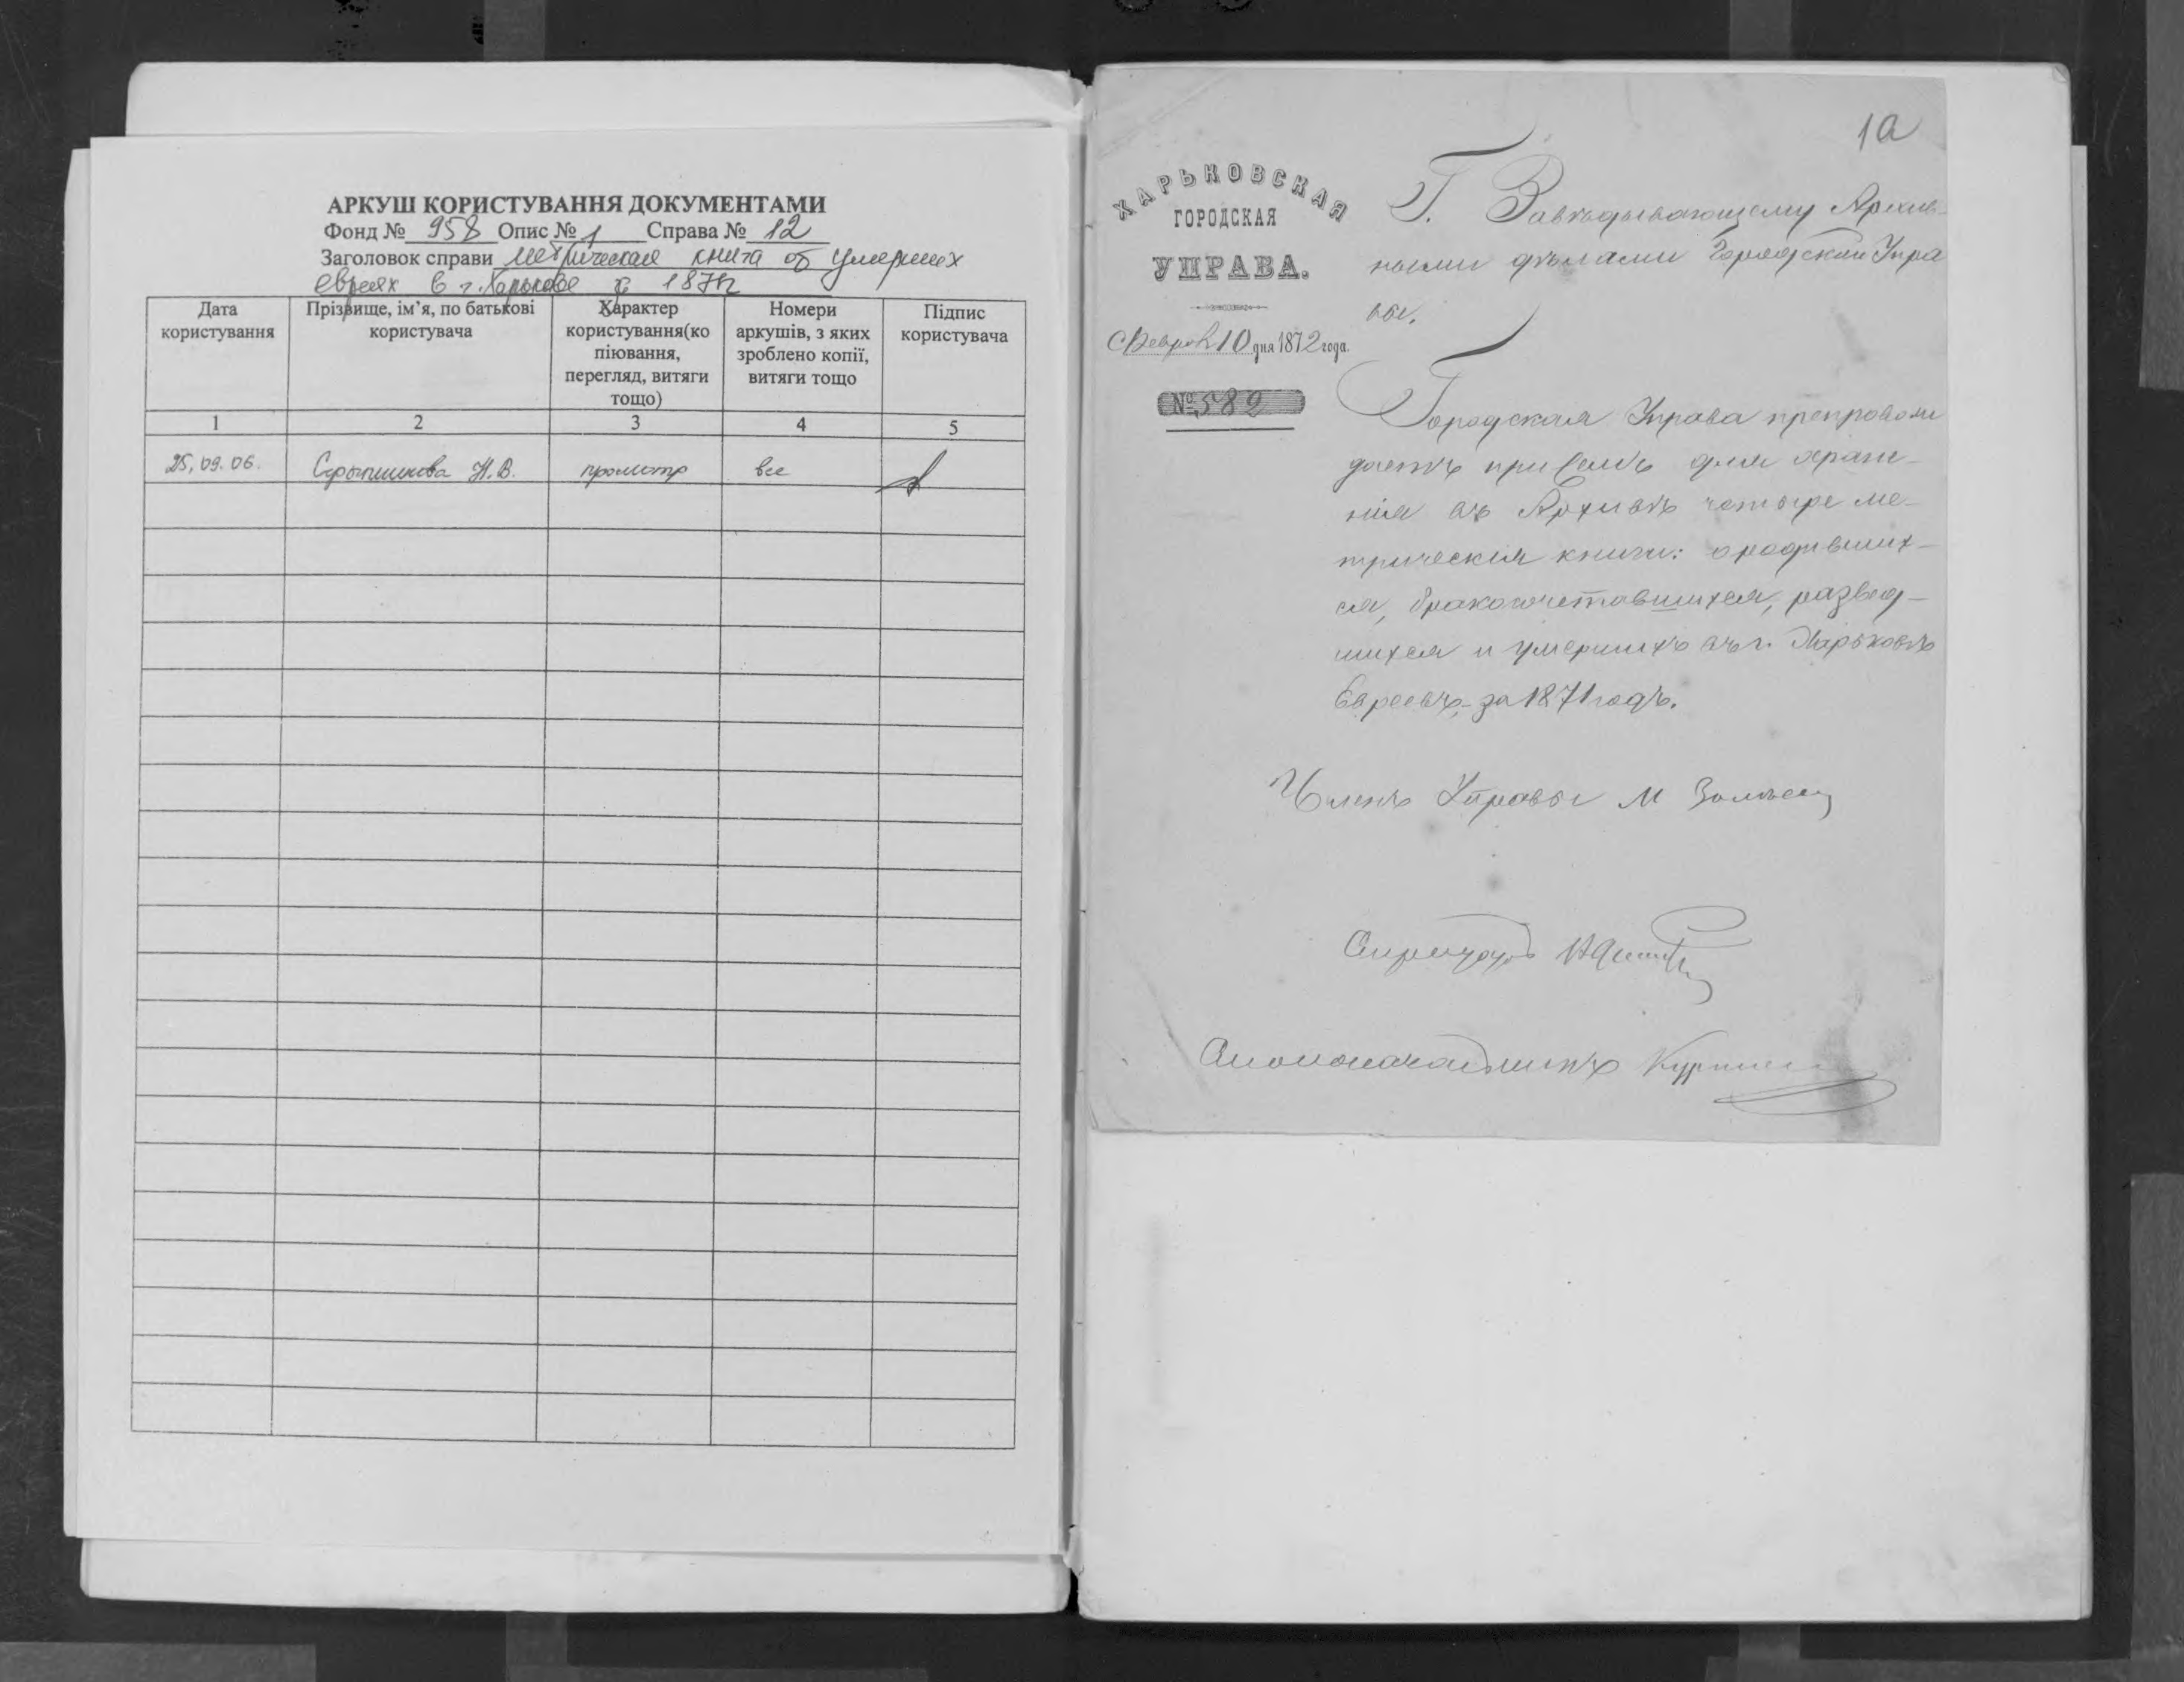 АРКУШ КОРИСТУВАННЯ ДОКУМЕНТАМИ
Фонд № 958 Опис № 1 Справа № 12
Заголовок справи метрическая книга об умерших
евреях в г. Харькове 1871г
Дата користування
Прізвище, ім’я, по батькові користувача
Характер користування(ко піювання, перегляд, витяги тощо)
Номери аркушів, з яких зроблено копії, витяги тощо
Підпис користувача
1 2 3 4 5
25.09.06. Н.В. просмотр все
1а
ХАРЬКОВСКАЯ
ГОРОДСКАЯ
УПРАВА.
Февраля 10 дня 1872 года.
№ 582
Г. Завѣдывающему Архив-
ными дѣлами Городской Упра
вы.
Городская Управа препровож
даетъ при семъ для хране-
нія въ Архивѣ четыре ме-
трическія книги: о родивших-
ся, бракосочетавшихся, развед-
шихся и умершихъ въ г. Харьковѣ
Евреевъ, за 1871 годъ.
Членъ Управы М
Секретарь
Столоначальникъ